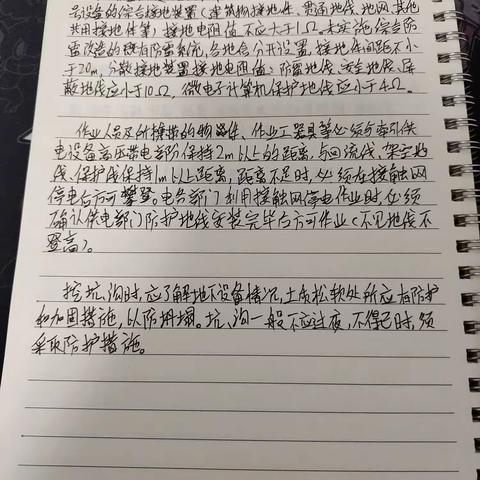 号设备的综合接地装置（建筑物接地体、贯通地线、地网、其他
共用接地体等）接地电阻值不应大于1Ω。未实施综合防
雷改造的既有防雷系统，各地合分开设置，接地体间距不小
于20m，分散接地装置接地电阻值：防雷地线、安全地线、屏
蔽地线应小于10Ω，微电子计算机保护地线应小于4Ω。
作业人员及所携带的物件、作业工器具等必须与牵引供
电设备高压带电部分保持2m以上的距离，与回流线、架空地
线、保护线保持1m以上距离，距离不足时，必须在接触网
停电后方可攀登。电务部门利用接触网停电作业时，必须
确认供电部门防护地线安装完毕后方可作业（不见地线不
登高）。
挖坑、沟时，应了解地下设备情况，土质松软处所应有防护
和加固措施，以防坍塌。坑、沟一般不应过夜，不得已时，须
采取防护措施。